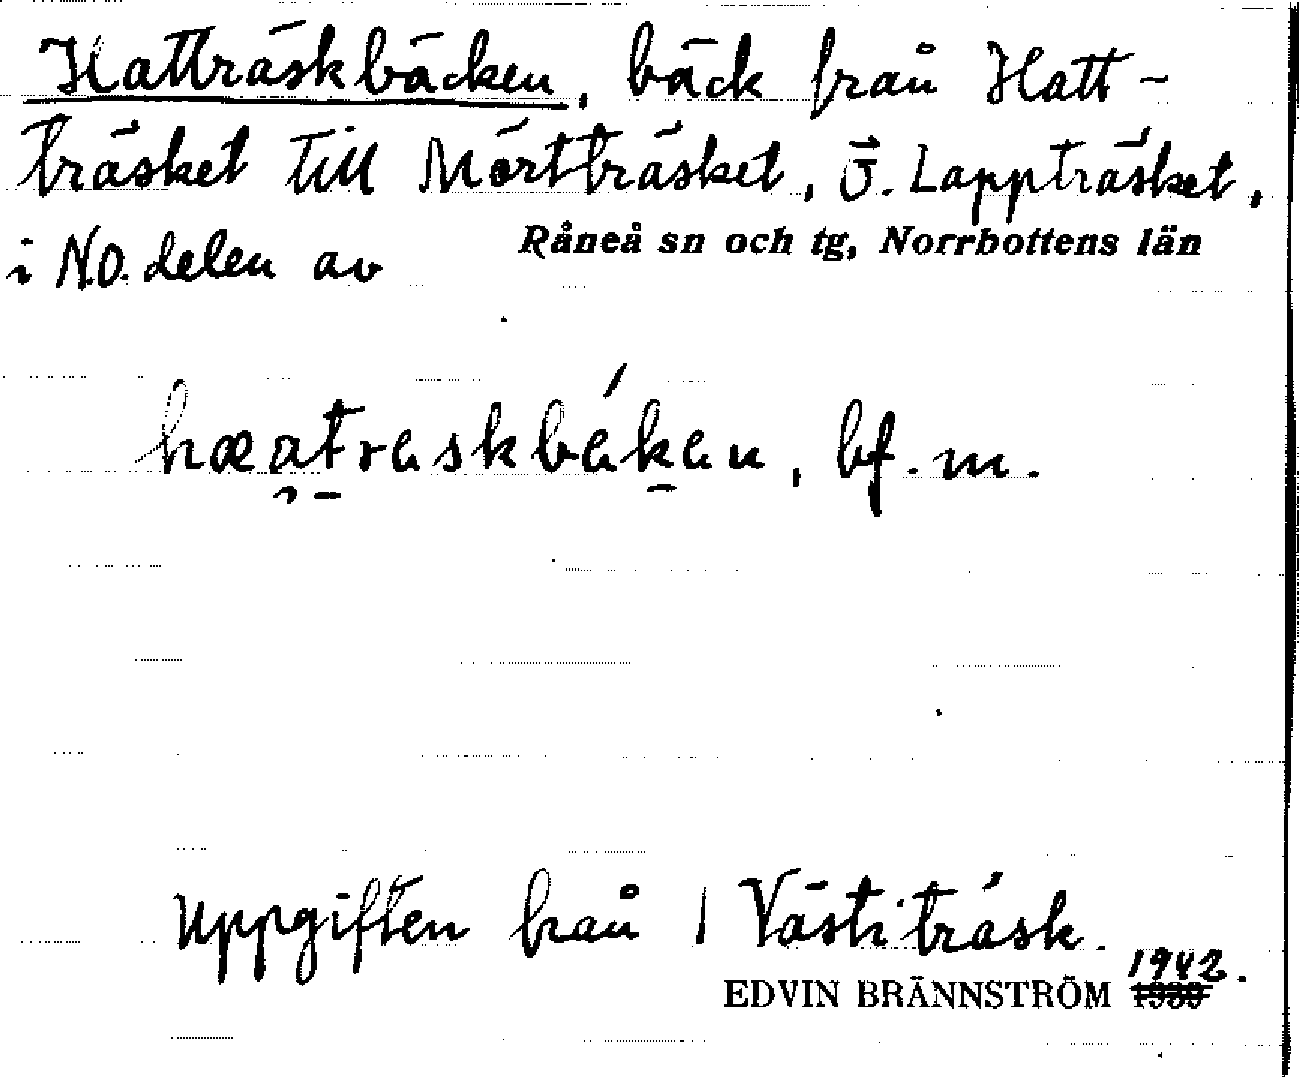 Hatträskbäcken, bäck från Hatt-
träsket till Mörtträsket, Ö. Lappträsket,
i NO. delen av Råneå sn och tg, Norrbottens län
hæatraskbéken, bf. m.
Uppgiften från 1 Västiträsk.
EDVIN BRÄNNSTRÖM 1942.